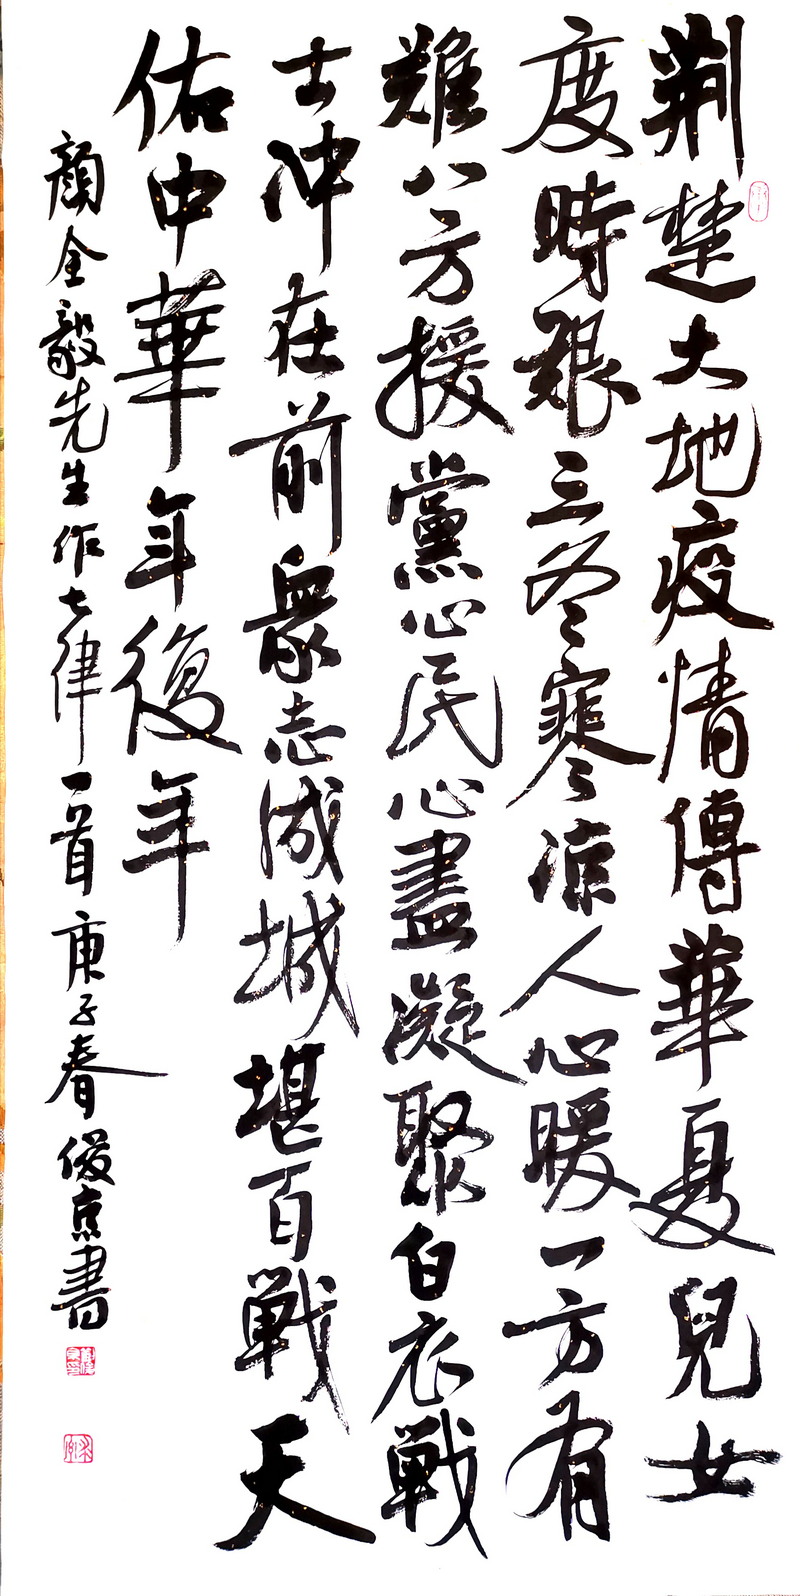 荆楚大地疫情傳華夏兒女
度時艱三冬寒涼人心暖一方有
難八方援黨心民心盡凝聚白衣戰
士沖在前衆志成城堪百戰天
佑中華年復年
顏全毅先生作七律一首庚子春俊京書